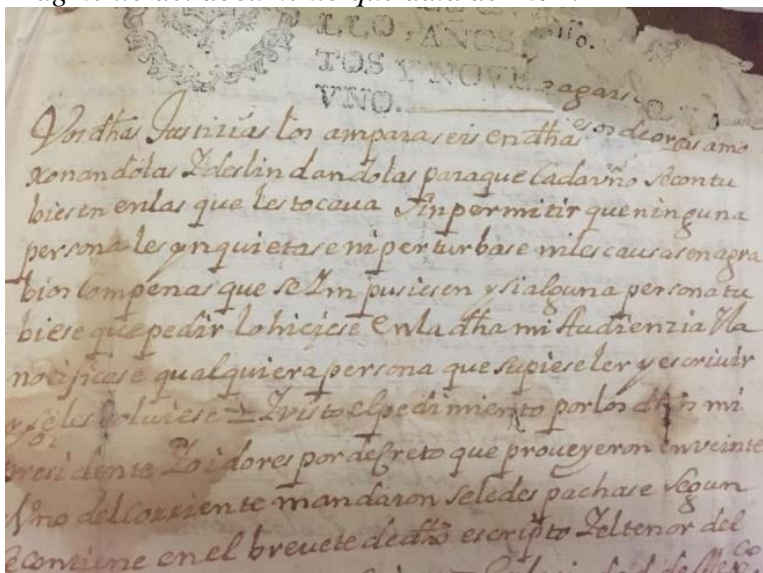 LLO, AÑOS
TOS Y NOVE
VNO.
Vos dhas Justizias los amparaseis en dhas
xonandolas Ydeslindandolas paraque Cadavño Secontu
biesen enlas que lestocaua Sinpermitir queninguna
persona les ynquietase niperturbase niles causasenagra
bios Compenas que se Ympusiesen ysialguna personatu
biese quepedir Lohiciese Enla dha mi Audienzia Yla
notificase qualquiera persona que supiese ler y escriuir
y seles voluiese = Yvisto elpedimiento porlos dhos mi
Presidente Yoidores por decreto que proueyeron enveinte
Vno delcorriente mandaron seledespachase Segun
Secontiene en el brevete de dho escripto Yeltenor del